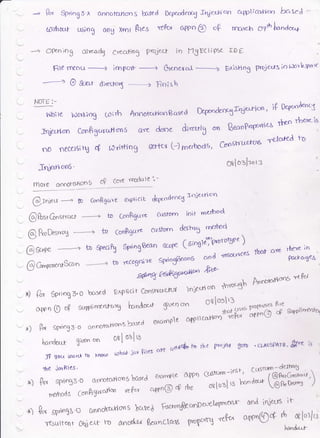 → For Spring 3.x annotations based Dependency Injection application based -
without using any xml files refer appn ③ of march 07th handout
→ opening already creating project in MyEclipse IDE
File menu → import → General → Existing projects in workspace
→ ⊙ select directory → Finish
NOTE :-
While working with Annotation Based Dependency Injection, if Dependency
Injection Configurations are done directly on Bean Properties then there is
no necessity of writing setter (-) methods, Constructors related to
Injections.
08/03/2013
More annotations of core module :-
@Inject → to configure explicit dependency Injection
@PostConstruct → to configure custom init method
@PreDestroy → to configure custom destroy method
@Scope → to specify Spring Bean scope (single, prototype)
@ComponentScan → to recognize Spring Beans and resources that are there in packages.
*) For Spring 3.0 based Explicit Constructor Injection through Annotations refer
appn ① of supplimentary handout given on 08/03/13
*) For Spring 3.0 annotations based example application that uses properties file refer appn ② of Supplimentary
handout given on 08/03/13
If you want to know what jar files are added to the project goto .CLASSPATH, there is
the jarfiles.
*) for Spring 3.0 annotations based example appn Custom-init, Custom-destroy
methods configuration refer appn ③ of the 08/03/13 handout (@PostConstruct, @PreDestroy)
*) for Spring 3.0 annotations based FactoryBean Development and injects it
resultant object to another Bean class property refer appn ④ of th 08/03/13
handout